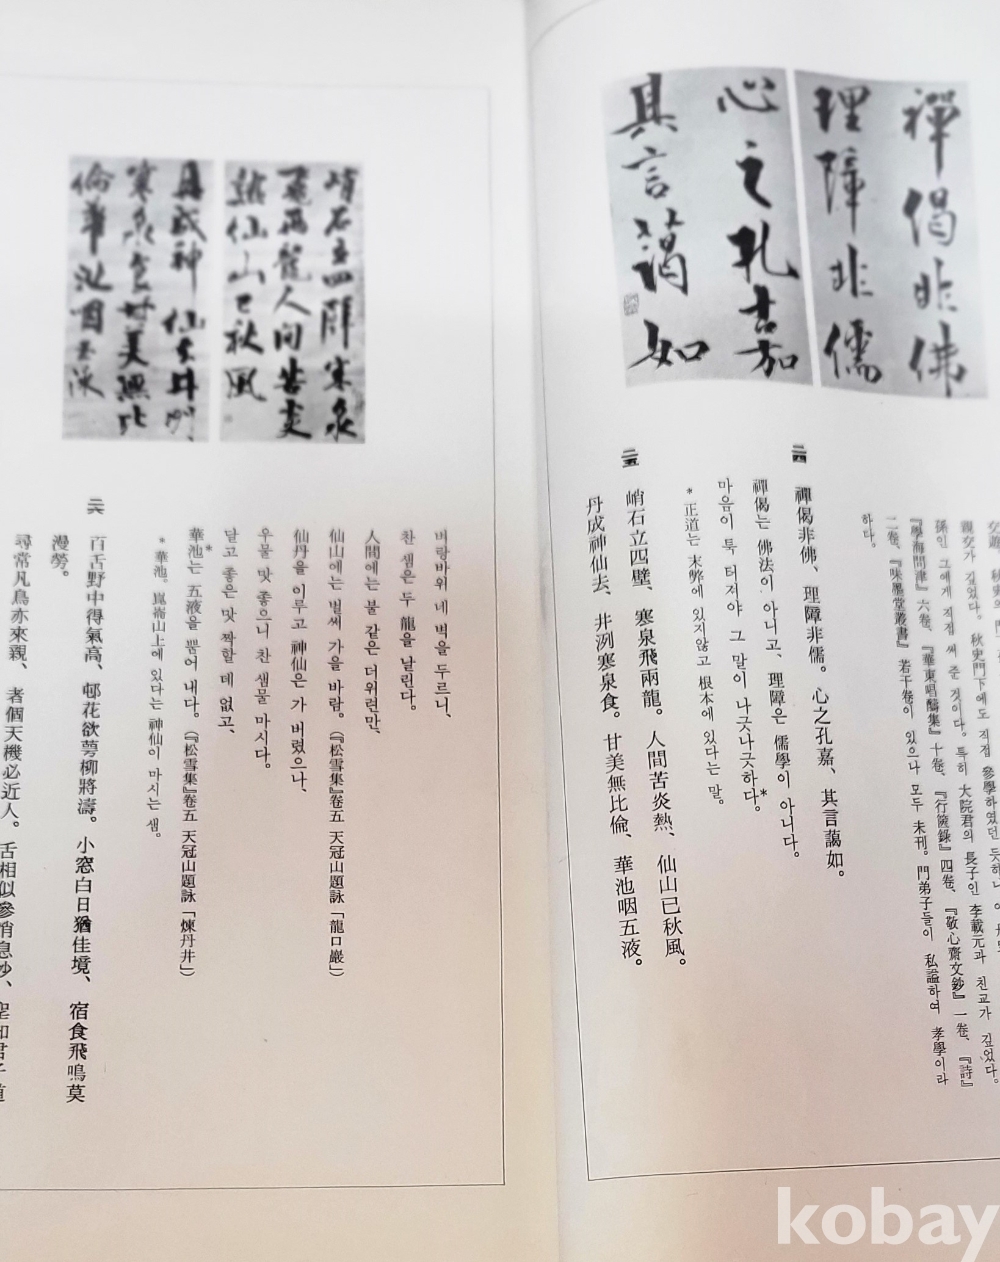 禪偈非佛
理障非儒
心之孔嘉
其言藹如
交遊
親交가 깊었다。秋史門下에도 직접 參學하였던 듯하나
孫인 그에게 직접 써 준 것이다。특히 大院君의 長子인 李載元과 친교가 깊었다。
『學海問津』六卷、『華東唱酬集』十卷、『行篋錄』四卷、『敬心齋文鈔』一卷、『詩』
二卷、『味墨堂叢書』若干卷이 있으나 모두 未刊。門弟子들이 私謚하여 孝學이라
하다。
二四 禪偈非佛、理障非儒。心之孔嘉、其言藹如。
禪偈는 佛法이 아니고、理障은 儒學이 아니다。
마음이 툭 터져야 그 말이 나긋나긋하다。*
*正道는 末弊에 있지않고 根本에 있다는 말。
二五 峭石立四壁、寒泉飛兩龍。人間苦炎熱、仙山已秋風。
丹成神仙去、井洌寒泉食。甘美無比倫、華池咽五液。
峭石立四壁寒泉
飛兩龍人間苦炎
熱仙山已秋風
丹成神仙去井洌
寒泉食甘美無比
倫華池咽五液
벼랑바위 네 벽을 두르니、
찬 샘은 두 龍을 날린다。
人間에는 불 같은 더위련만、
仙山에는 벌써 가을 바람。(『松雪集』卷五 天冠山題詠「龍口巖」)
仙丹을 이루고 神仙은 가 버렸으나、
우물 맛 좋으니 찬 샘물 마시다。
달고 좋은 맛 짝할 데 없고、
華池*는 五液을 뿜어 내다。(『松雪集』卷五 天冠山題詠「煉丹井」)
*華池。崑崙山上에 있다는 神仙이 마시는 샘。
二六 百舌野中得氣高、邨花欲萼柳將濤。小窓白日猶佳境、宿食飛鳴莫
漫勞。
尋常凡鳥亦來親、者個天機必近人。舌相似參消息妙、聖知君子道
kobay